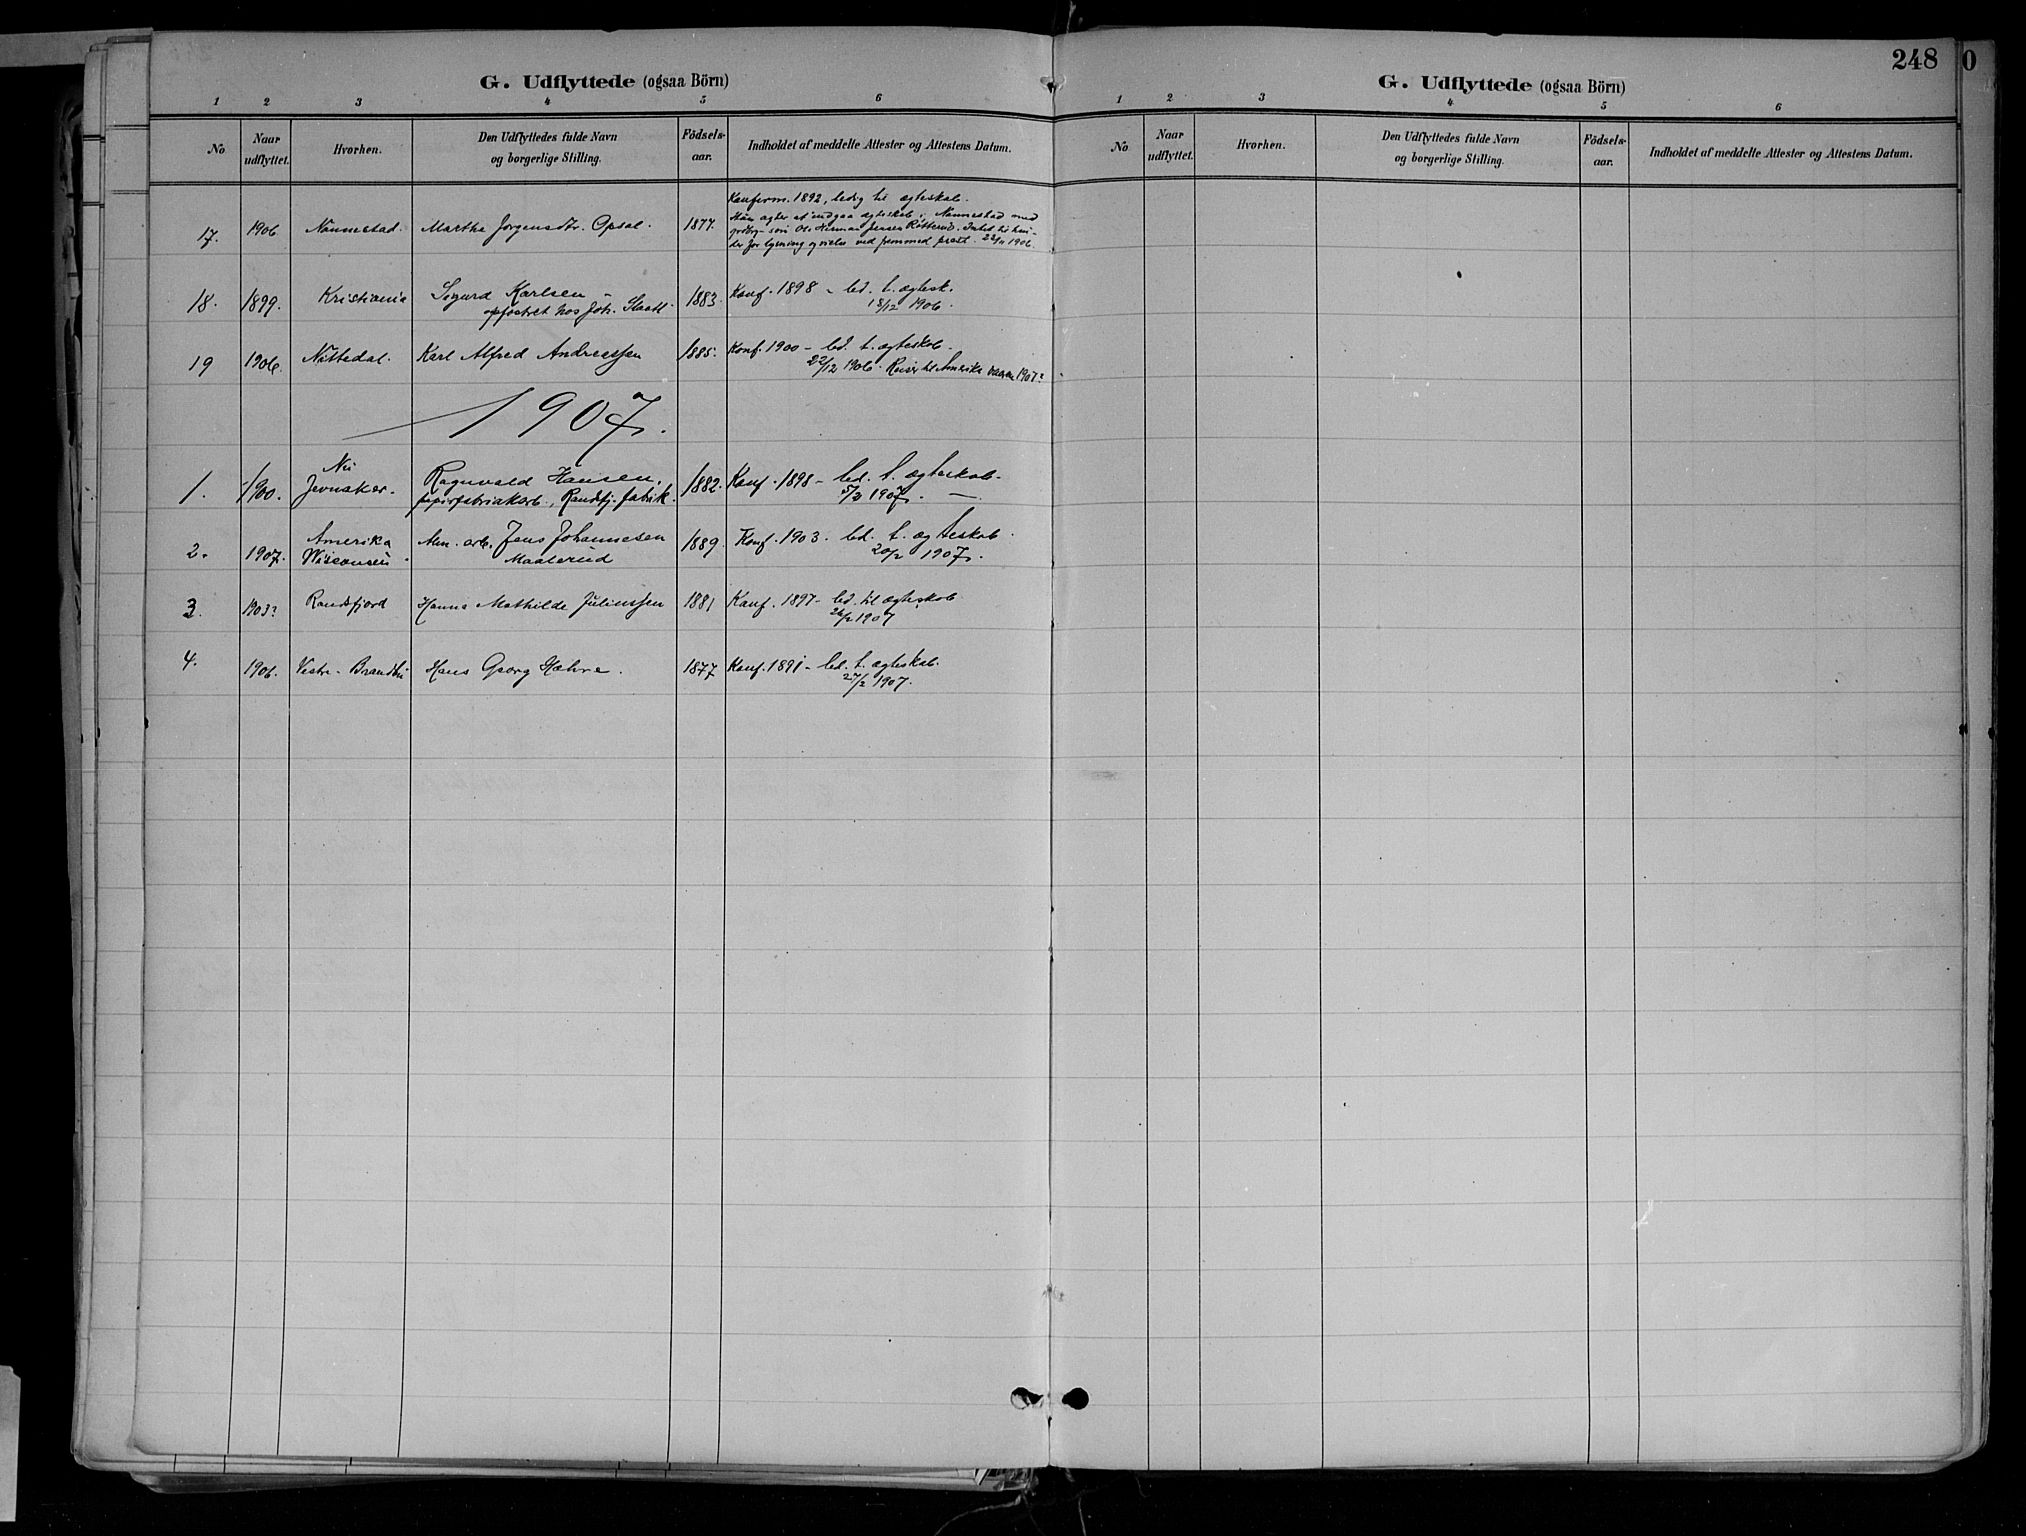 G. Udflyttede (ogsaa Börn)
1 2 3 4 5 6
No Naar udflyttet. Hvorhen. Den Udflyttedes fulde Navn og borgerlige Stilling. Födsels-aar. Indholdet af meddelte Attester og Attestens Datum.
Konfirm. 1892, ledig til ægteskab.
17. 1906 Nannestad. Martha Jörgensdtr. Opsal. 1877. Hun agter at indgaa ægteskab i Nannestad med
Ole Herman Jensen Intet til hin-
der for lysning og vielse ved fremmed prest. 22/11 1906.
18. 1899. Kristiania Sigurd Karlsen – 1883. Konf. 1898 – led. t. ægtesk.
opfostret hos Joh. 18/12 1906.
19 1906. Nittedal. Karl Alfred Andreassen 1885. Konf. 1900 – led. t. ægteskab.
22/12 1906. Reiser til Amerika vaaren 1907?
1907.
1. 1900. Nu Jevnaker. Ragnvald Hansen, 1882. Konf. 1898 – led. t. ægteskab.
papirfabrikarb., Randsfj. fabrik. 5/2 1907. —
2. 1907. Amerika Wisconsin. Alm. arb. Jens Johannesen 1889. Konf. 1903. led. t. ægteskab.
Maalerud 20/2 1907.
3. 1903? Randsfjord Hanna Mathilde Juliussen 1881 Konf. 1897 – led. til ægteskab.
26/2 1907
4. 1906. Vestre-Brandbu Hans Georg Hæhre. 1877 Konf. 1891 – led. t. ægteskab.
27/2 1907.
248
0
G. Udflyttede (ogsaa Börn)
1 2 3 4 5 6
No Naar udflyttet. Hvorhen. Den Udflyttedes fulde Navn og borgerlige Stilling. Födsels-aar. Indholdet af meddelte Attester og Attestens Datum.